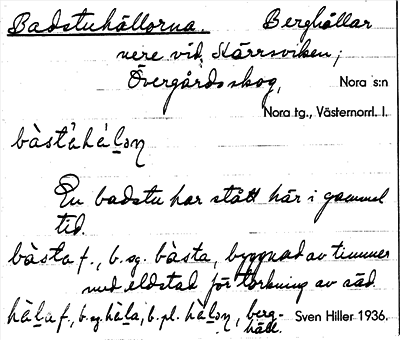 Badstuhällorna. Berghällar
nere vid Kärrsviken,
Övergårdsskog, Nora s:n
Nora tg., Västernorrl. l.
bàstàhä̀ḷəṇ
En badstu har stått här i gammal
tid.
bàsta f., b. sg. bàsta, byggnad av timmer
med eldstad för torkning av säd.
hä̀ḷa f., b. sg hä̀ḷa, b. pl. hä̀ḷəṇ, berg-
häll. Sven Hiller 1936.